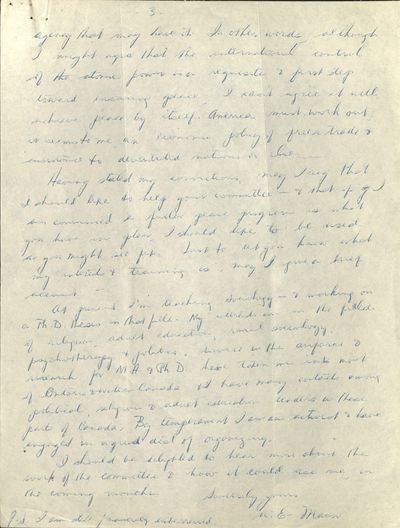 3-
agency that may have it. In other words, although
I might agree that the international control
of the atomic power is a requisite & first step
toward insuring peace, I can't agree it will
achieve peace by itself. America must work out,
it seems to me an economic policy of freer trade &
assistance to devastated nations or else —
Having stated my convictions, may I say that
I should like to help your committee — & that if I
am convinced a peace program is what
you have in plan, I should like to be used
as you might see fit. Just to let you know what
my interests & training is, may I give a brief
account —
At present I'm teaching Sociology — & working on
a Ph.D. thesis in that field. My interests are in the fields
of religion, adult education, rural sociology,
psychotherapy & politics. Service in the airforce &
research for M.A. & Ph.D. have taken me into most
of Ontario & Canada & I have many contacts among
political, religious & adult education leaders in those
parts of Canada. By temperament I am an activist & have
engaged in a good deal of organizing.
I should be delighted to hear more about the
work of the committee & how it could use me, in
the coming months.
Sincerely yours
Mann
P.S. I am interested